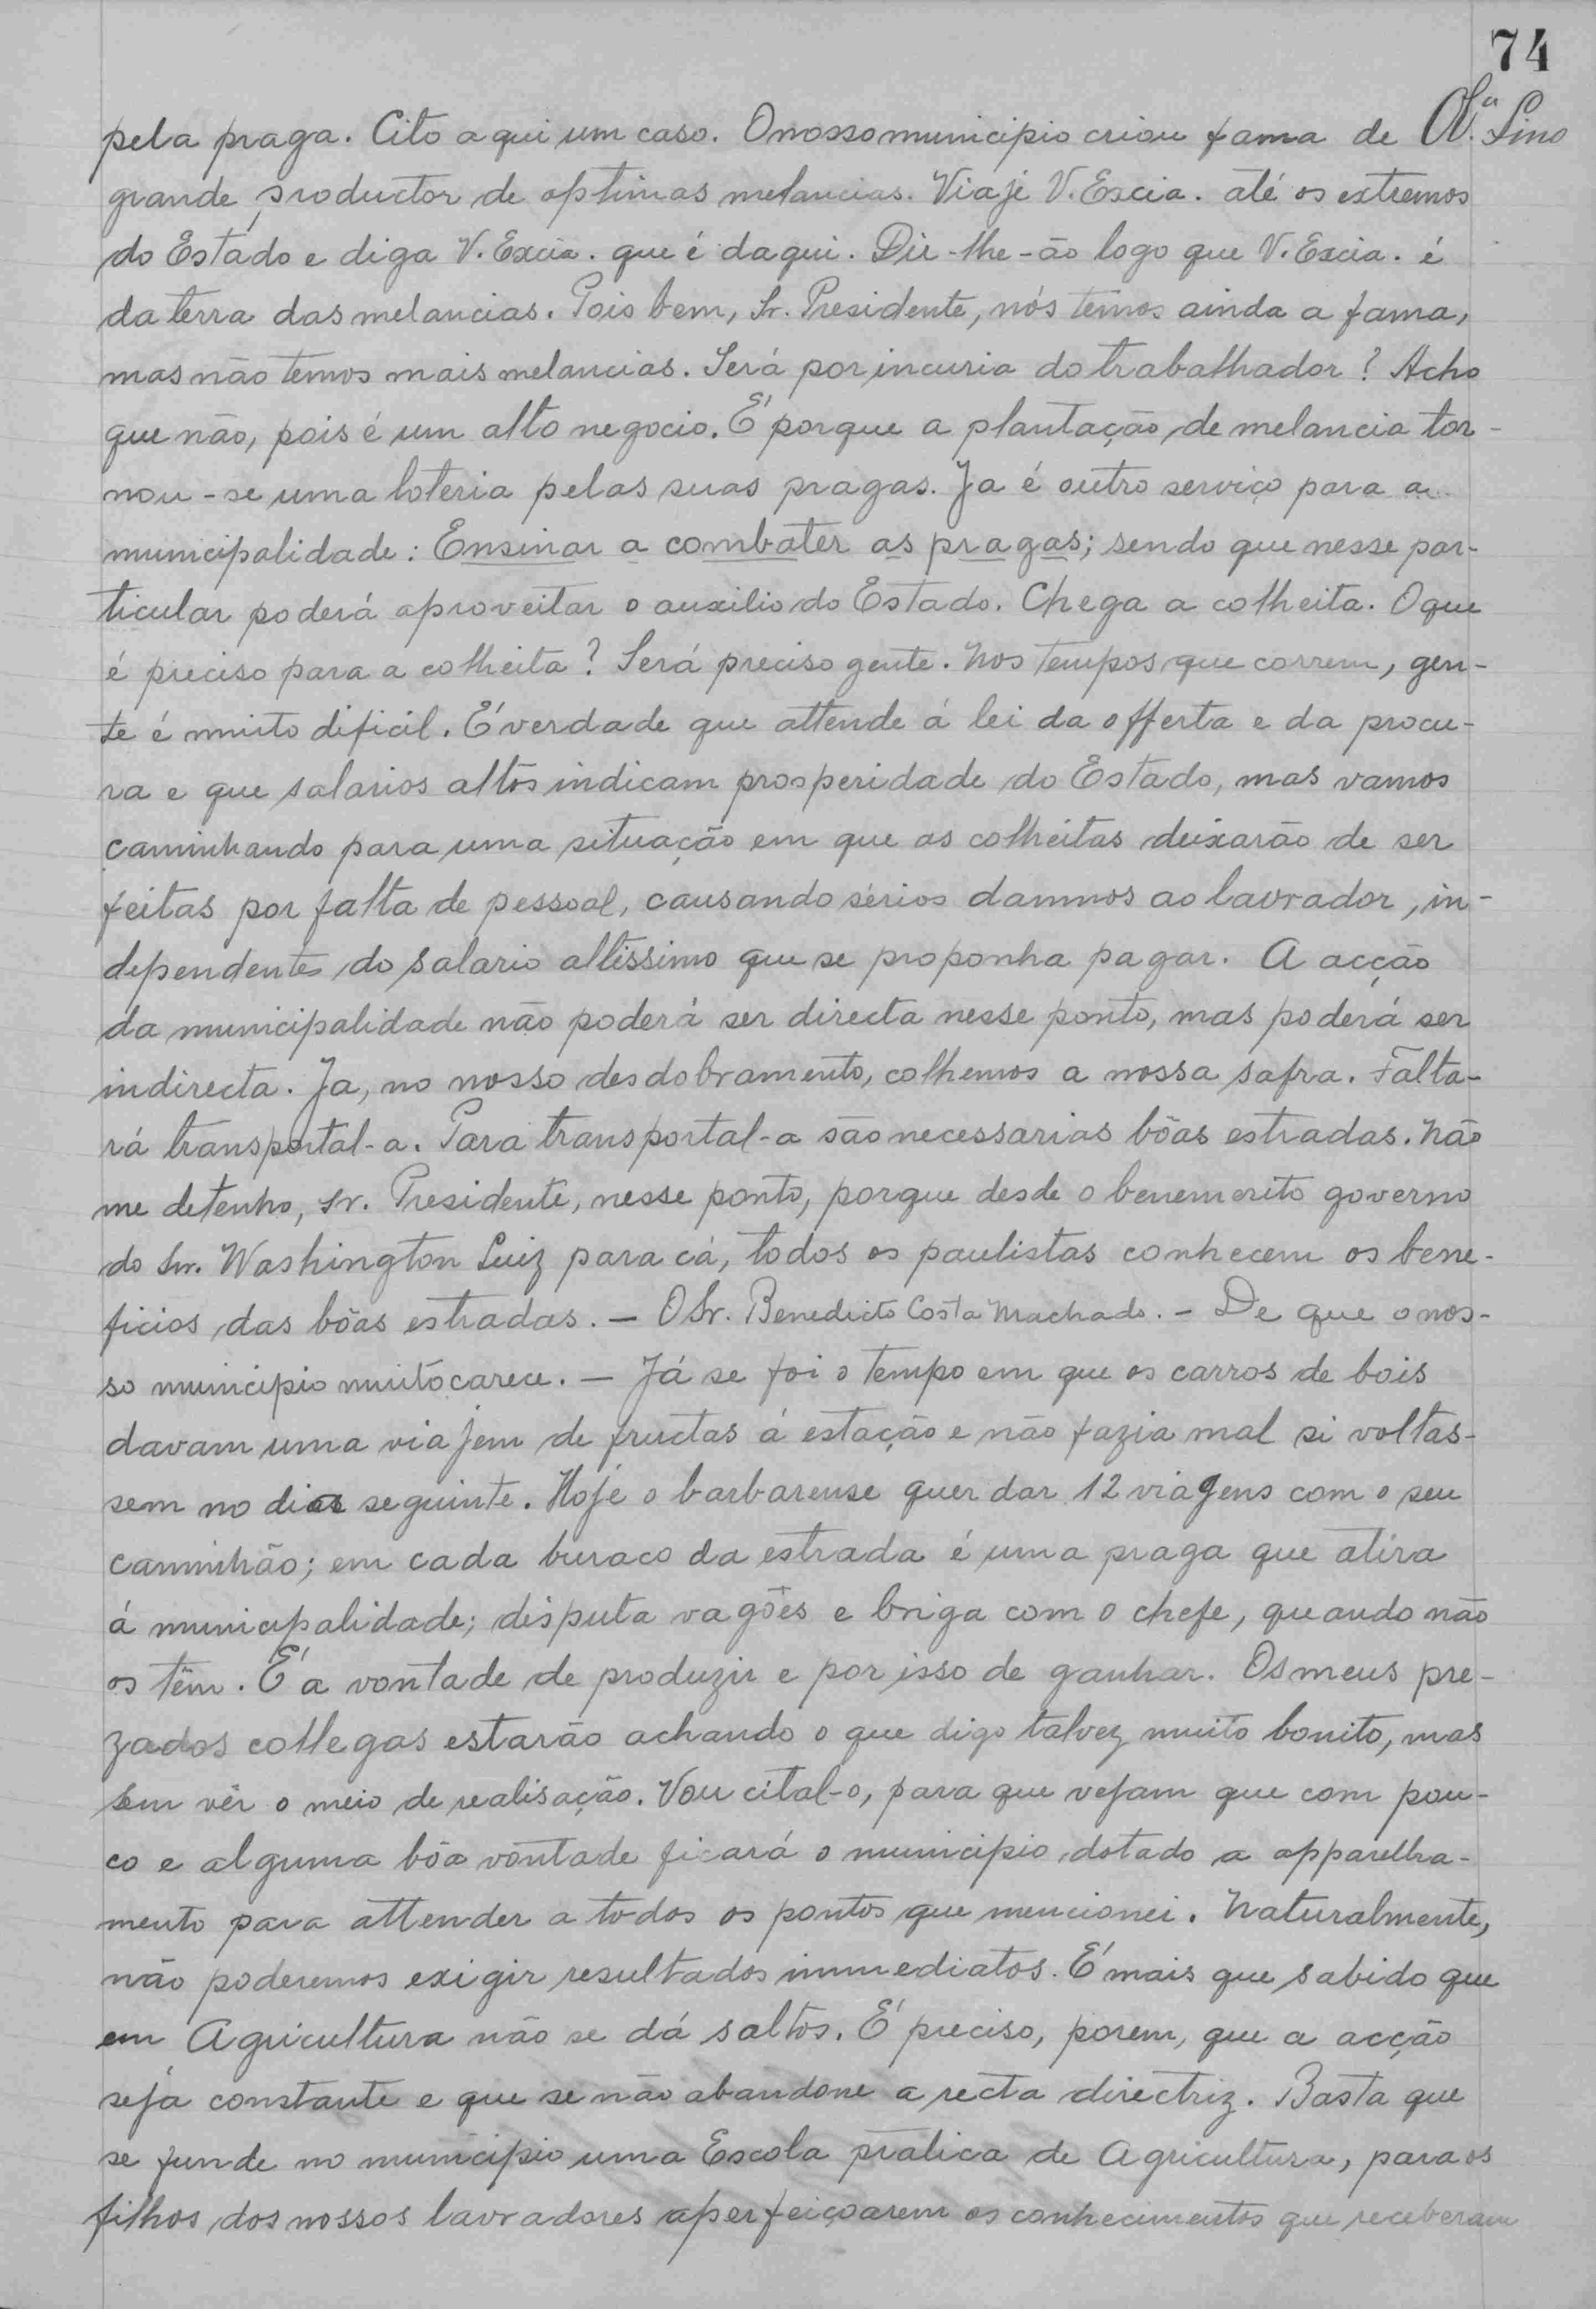 74
pela praga. Cito aqui um caso. O nosso municipio criou fama de
Lino
grande productor de optimas melancias. Viaje V. Excia. até os extremos
do Estado e diga V. Excia. que é daqui. Dir-lhe-ão logo que V. Excia. é
da terra das melancias. Pois bem, Sr. Presidente, nós temos ainda a fama,
mas não temos mais melancias. Será por incuria do trabalhador? Acho
que não, pois é um alto negocio. É porque a plantação de melancia tor-
nou-se uma loteria pelas suas pragas. Ja é outro serviço para a
municipalidade: Ensinar a combater as pragas; sendo que nesse par-
ticular poderá aproveitar o auxilio do Estado. Chega a colheita. O que
é preciso para a colheita? Será preciso gente. Nos tempos que correm, gen-
te é muito dificil. É verdade que attende á lei da offerta e da procu-
ra e que salarios altos indicam prosperidade do Estado, mas vamos
caminhando para uma situação em que as colheitas deixarão de ser
feitas por falta de pessoal, causando sérios damnos ao lavrador, in-
dependente do salario altissimo que se proponha pagar. A acção
da municipalidade não poderá ser directa nesse ponto, mas poderá ser
indirecta. Ja, no nosso desdobramento, colhemos a nossa safra. Falta-
rá transportal-a. Para transportal-a são necessarias bôas estradas. Não
me detenho, Sr. Presidente, nesse ponto, porque desde o benemerito governo
do Snr. Washington Luiz para cá, todos os paulistas conhecem os bene-
ficios das bôas estradas. — O Sr. Benedicto Costa Machado. — De que o nos-
so municipio muito carece. — Já se foi o tempo em que os carros de bois
davam uma viajem de fructas á estação e não fazia mal si voltas-
sem no dia seguinte. Hoje o barbarense quer dar 12 viagens com o seu
caminhão; em cada buraco da estrada é uma praga que atira
á municipalidade; disputa vagões e briga com o chefe, quando não
os têm. É a vontade de produzir e por isso de ganhar. Os meus pre-
zados collegas estarão achando o que digo talvez muito bonito, mas
sem vêr o meio de realisação. Vou cital-o, para que vejam que com pou-
co e alguma bôa vontade ficará o municipio dotado a apparelha-
mento para attender a todos os pontos que mencionei. Naturalmente,
não poderemos exigir resultados immediatos. É mais que sabido que
em Agricultura não se dá saltos. É preciso, porem, que a acção
seja constante e que se não abandone a recta directriz. Basta que
se funde no municipio uma Escola pratica de Agricultura, para os
filhos dos nossos lavradores aperfeiçoarem os conhecimentos que receberam